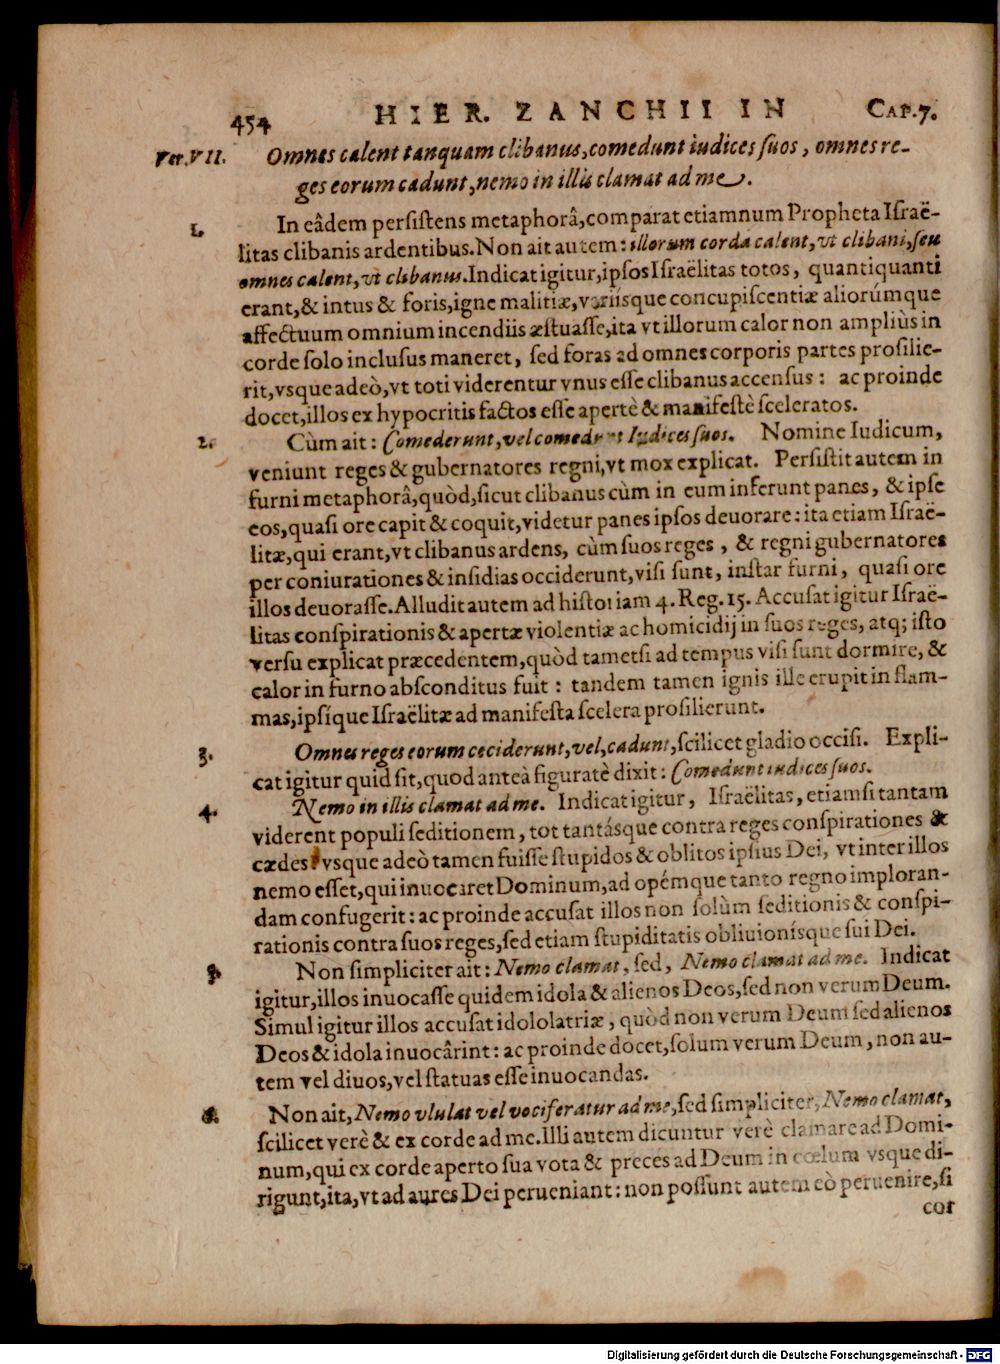 454 HIER. ZANCHII IN CAP.7.
Ver.VII. Omnes calent tanquam clibanus,comedunt iudices ſuos, omnes re-
ges eorum cadunt,nemo in illis clamat ad me.
1. In eâdem perſiſtens metaphorâ,comparat etiamnum Propheta Iſraë-
litas clibanis ardentibus.Non ait autem: illorum corda calent, vt clibani,ſeu
omnes calent,vt clibanus.Indicat igitur,ipſos Iſraëlitas totos, quantiquanti
erant,& intus & foris,igne malitiæ,variiſque concupiſcentiæ aliorúmque
affectuum omnium incendiis æſtuaſſe,ita vt illorum calor non ampliùs in
corde ſolo incluſus maneret, ſed foras ad omnes corporis partes proſilie-
rit,vsque adeò,vt toti viderentur vnus eſſe clibanus accenſus: ac proinde
docet,illos ex hypocritis factos eſſe apertè & manifeſtè ſceleratos.
2. Cùm ait: Comederunt, vel comedunt Iudices ſuos. Nomine Iudicum,
veniunt reges & gubernatores regni,vt mox explicat. Perſiſtit autem in
furni metaphorâ,quòd,ſicut clibanus cùm in eum inferunt panes, & ipſe
eos,quaſi ore capit & coquit,videtur panes ipſos deuorare: ita etiam Iſraë-
litæ,qui erant,vt clibanus ardens, cùm ſuos reges, & regni gubernatores
per coniurationes & inſidias occiderunt,viſi ſunt, inſtar furni, quaſi ore
illos deuoraſſe.Alludit autem ad hiſtoriam 4. Reg. 15. Accuſat igitur Iſraë-
litas conſpirationis & apertæ violentiæ ac homicidij in ſuos reges, atq; iſto
verſu explicat præcedentem,quòd tametſi ad tempus viſi ſunt dormire, &
calor in furno abſconditus fuit: tandem tamen ignis ille erupit in flam-
mas,ipſíque Iſraëlitæ ad manifeſta ſcelera proſilierunt.
3. Omnes reges eorum ceciderunt,vel,cadunt,ſcilicet gladio occiſi. Expli-
cat igitur quid ſit,quod anteà figuratè dixit: Comedunt iudices ſuos.
4. Nemo in illis clamat ad me. Indicat igitur, Iſraëlitas,etiamſi tantam
viderent populi ſeditionem, tot tantáſque contra reges conſpirationes &
cædes, vsque adeò tamen fuiſſe ſtupidos & oblitos ipſius Dei, vt inter illos
nemo eſſet,qui inuocaret Dominum,ad opémque tanto regno imploran-
dam confugerit: ac proinde accuſat illos non ſolùm ſeditionis & conſpi-
rationis contra ſuos reges,ſed etiam ſtupiditatis obliuioníſque ſui Dei.
5. Non ſimpliciter ait: Nemo clamat, ſed, Nemo clamat ad me. Indicat
igitur,illos inuocaſſe quidem idola & alienos Deos,ſed non verum Deum.
Simul igitur illos accuſat idololatriæ, quòd non verum Deum ſed alienos
Deos & idola inuocârint: ac proinde docet,ſolum verum Deum, non au-
tem vel diuos,vel ſtatuas eſſe inuocandas.
6. Non ait, Nemo vlulat vel vociferatur ad me,ſed ſimpliciter, Nemo clamat,
ſcilicet verè & ex corde ad me.Illi autem dicuntur verè clamare ad Domi-
num,qui ex corde aperto ſua vota & preces ad Deum in cœlum vsque di-
rigunt,ita,vt ad aures Dei perueniant: non poſſunt autem eò peruenire,ſi
cor
Digitalisierung gefördert durch die Deutsche Forschungsgemeinschaft - DFG